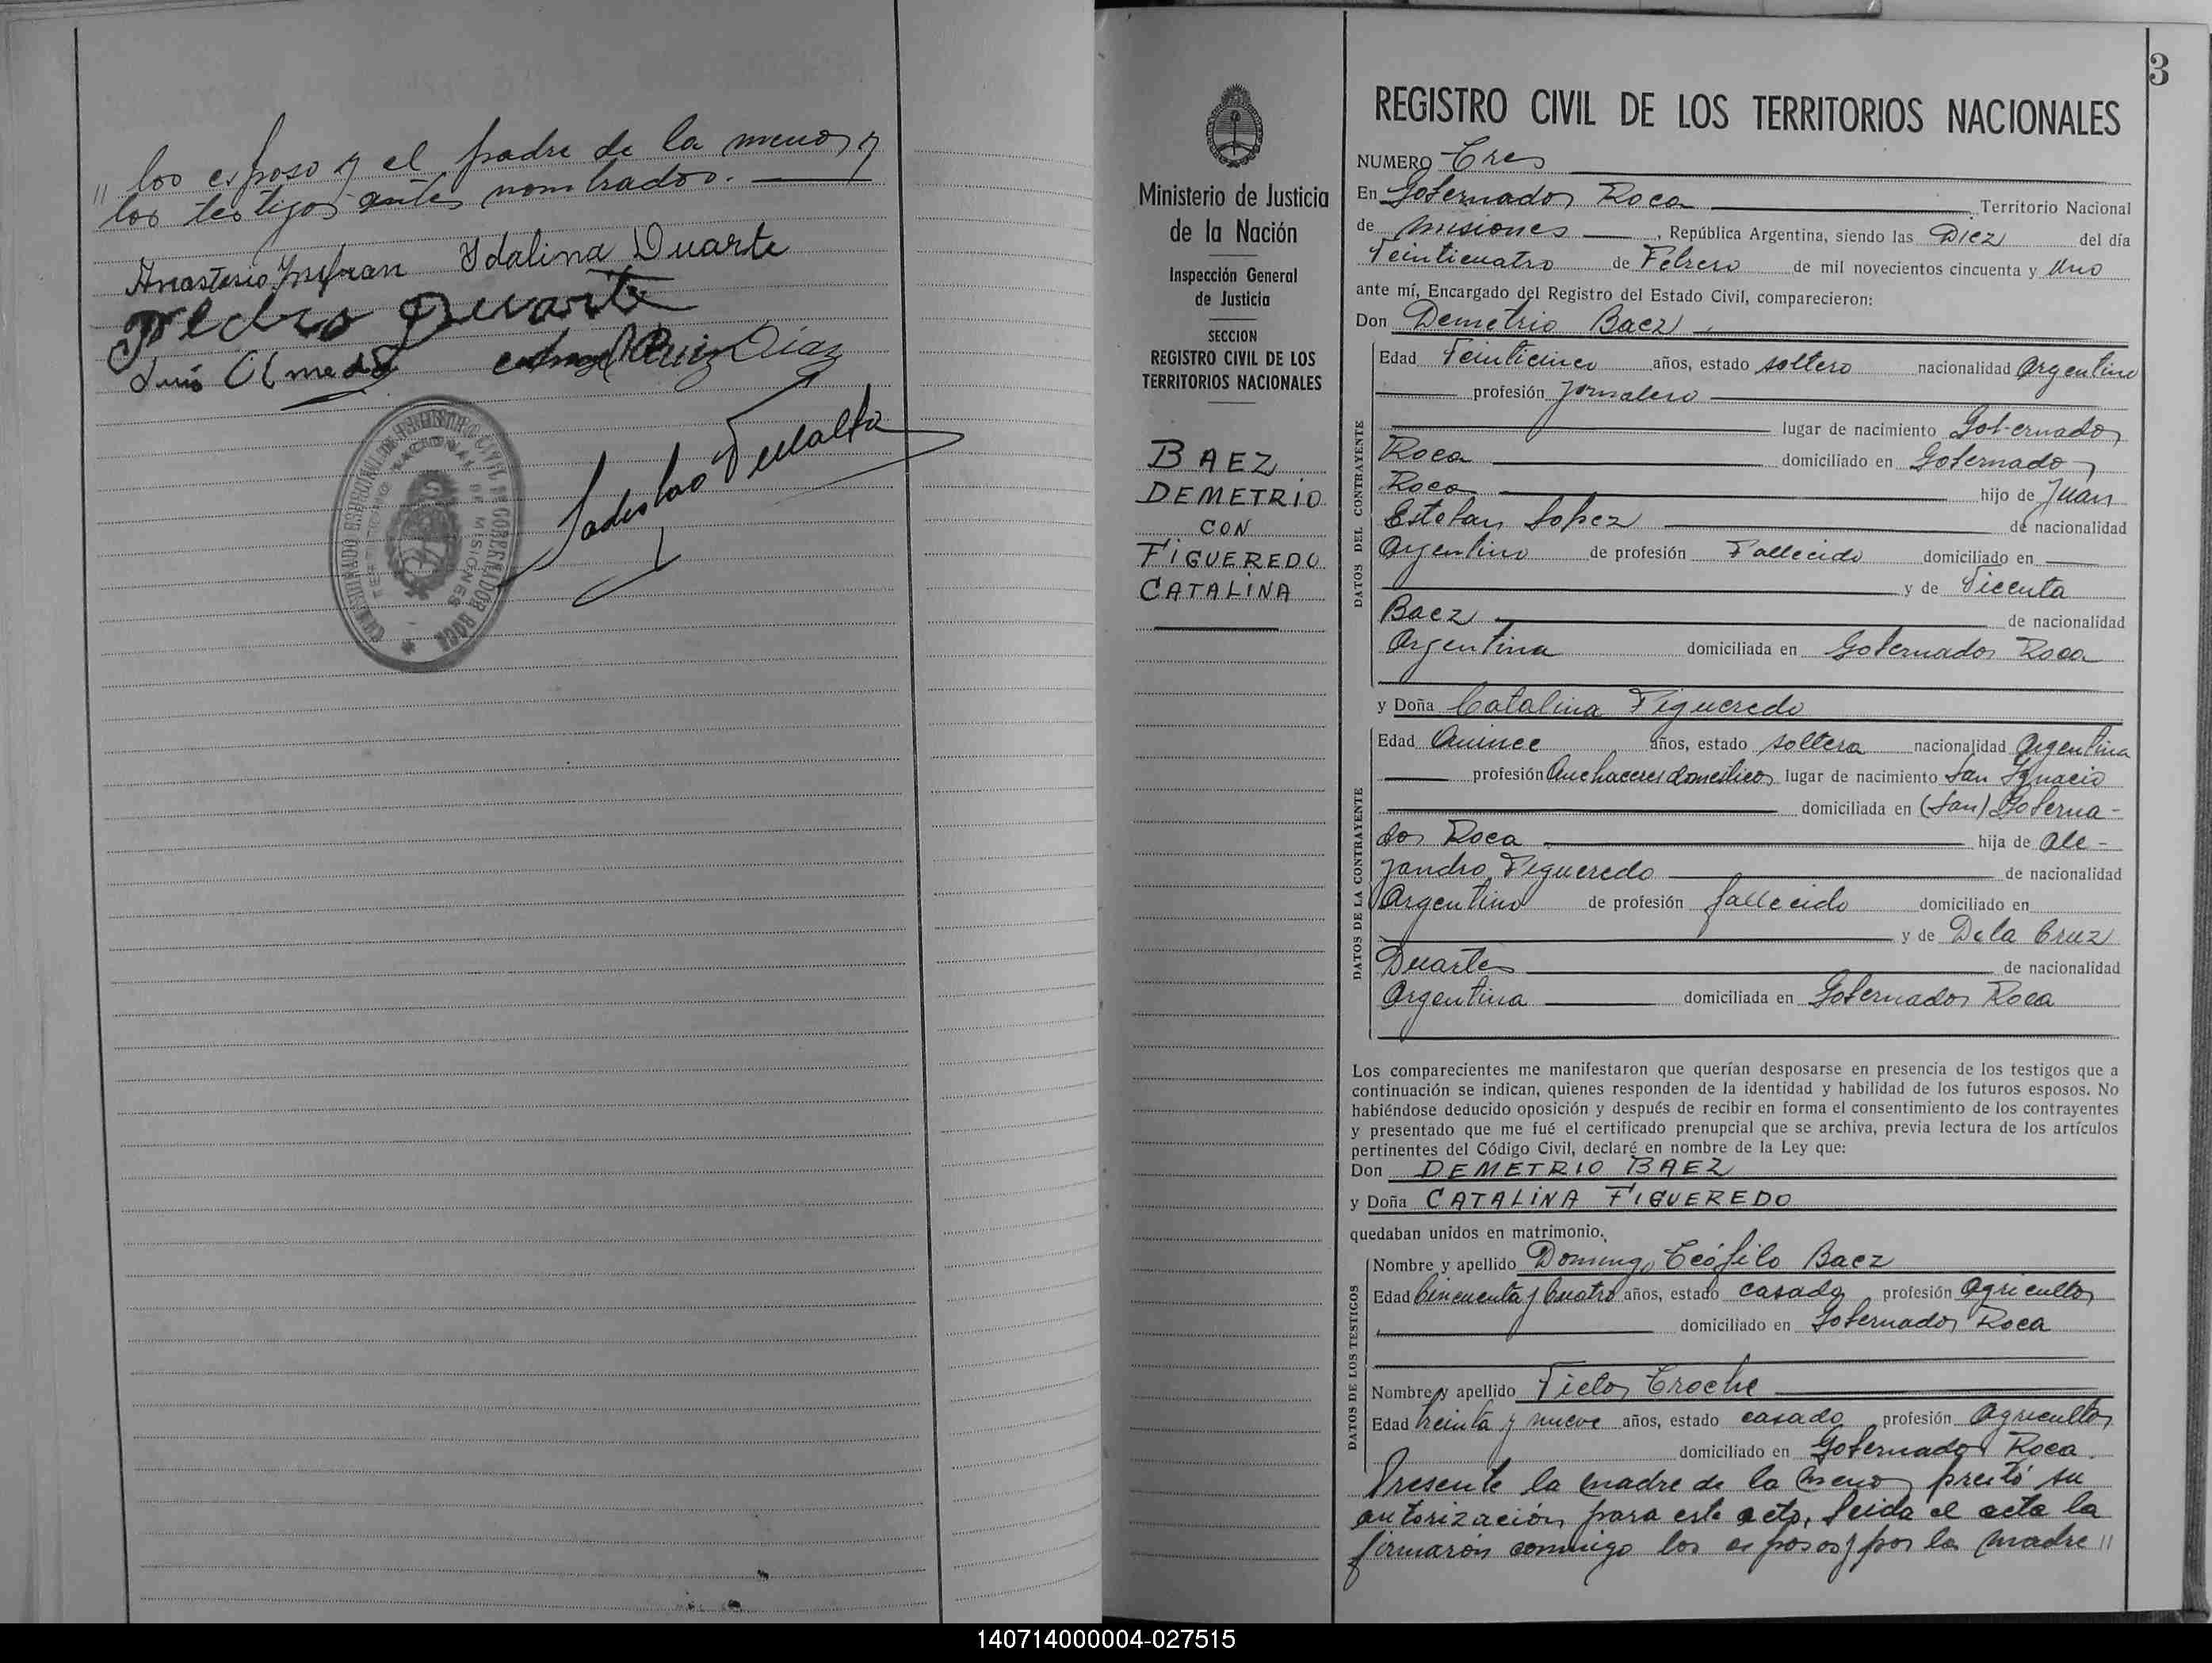 " los esposo y el padre de la menor y
los testigos antes nombrados.
Anastasio Insfran Idalina Duarte
Pedro Duarte
Luis Olmedo Ruiz Diaz
Ladislao Peralta
REGISTRO CIVIL
GOBERNADOR ROCA
NACIONAL DE MISIONES
3
Ministerio de Justicia
de la Nación
Inspección General
de Justicia
SECCION
REGISTRO CIVIL DE LOS
TERRITORIOS NACIONALES
BAEZ
DEMETRIO
CON
FIGUEREDO
CATALINA
REGISTRO CIVIL DE LOS TERRITORIOS NACIONALES
NUMERO Tres
En Gobernador Roca Territorio Nacional
de Misiones, República Argentina, siendo las Diez del día
Veinticuatro de Febrero de mil novecientos cincuenta y Uno
ante mí, Encargado del Registro del Estado Civil, comparecieron:
Don Demetrio Baez
DATOS DEL CONTRAYENTE
Edad Veinticinco años, estado soltero nacionalidad Argentino
profesión Jornalero
lugar de nacimiento Gobernador
Roca domiciliado en Gobernador
Roca hijo de Juan
Esteban Lopez de nacionalidad
Argentino de profesión Fallecido domiciliado en
y de Vicenta
Baez de nacionalidad
Argentina domiciliada en Gobernador Roca
y Doña Catalina Figueredo
DATOS DE LA CONTRAYENTE
Edad Quince años, estado soltera nacionalidad Argentina
profesión Quehaceres domesticos lugar de nacimiento San Ignacio
domiciliada en (San) Goberna-
dor Roca hija de Ale-
jandro Figueredo de nacionalidad
Argentino de profesión fallecido domiciliado en
y de De la Cruz
Duarte de nacionalidad
Argentina domiciliada en Gobernador Roca
Los comparecientes me manifestaron que querían desposarse en presencia de los testigos que a
continuación se indican, quienes responden de la identidad y habilidad de los futuros esposos. No
habiéndose deducido oposición y después de recibir en forma el consentimiento de los contrayentes
y presentado que me fué el certificado prenupcial que se archiva, previa lectura de los artículos
pertinentes del Código Civil, declaré en nombre de la Ley que:
Don DEMETRIO BAEZ
y Doña CATALINA FIGUEREDO
quedaban unidos en matrimonio.
DATOS DE LOS TESTIGOS
Nombre y apellido Domingo Teófilo Baez
Edad Cincuenta y Cuatro años, estado casado profesión Agricultor
domiciliado en Gobernador Roca
Nombre y apellido Victor Croche
Edad treinta y nueve años, estado casado profesión Agricultor
domiciliado en Gobernador Roca.
Presente la madre de la menor prestó su
autorización para este acto, Leida el acta la
firmarón conmigo los esposos y por la madre "
140714000004-027515